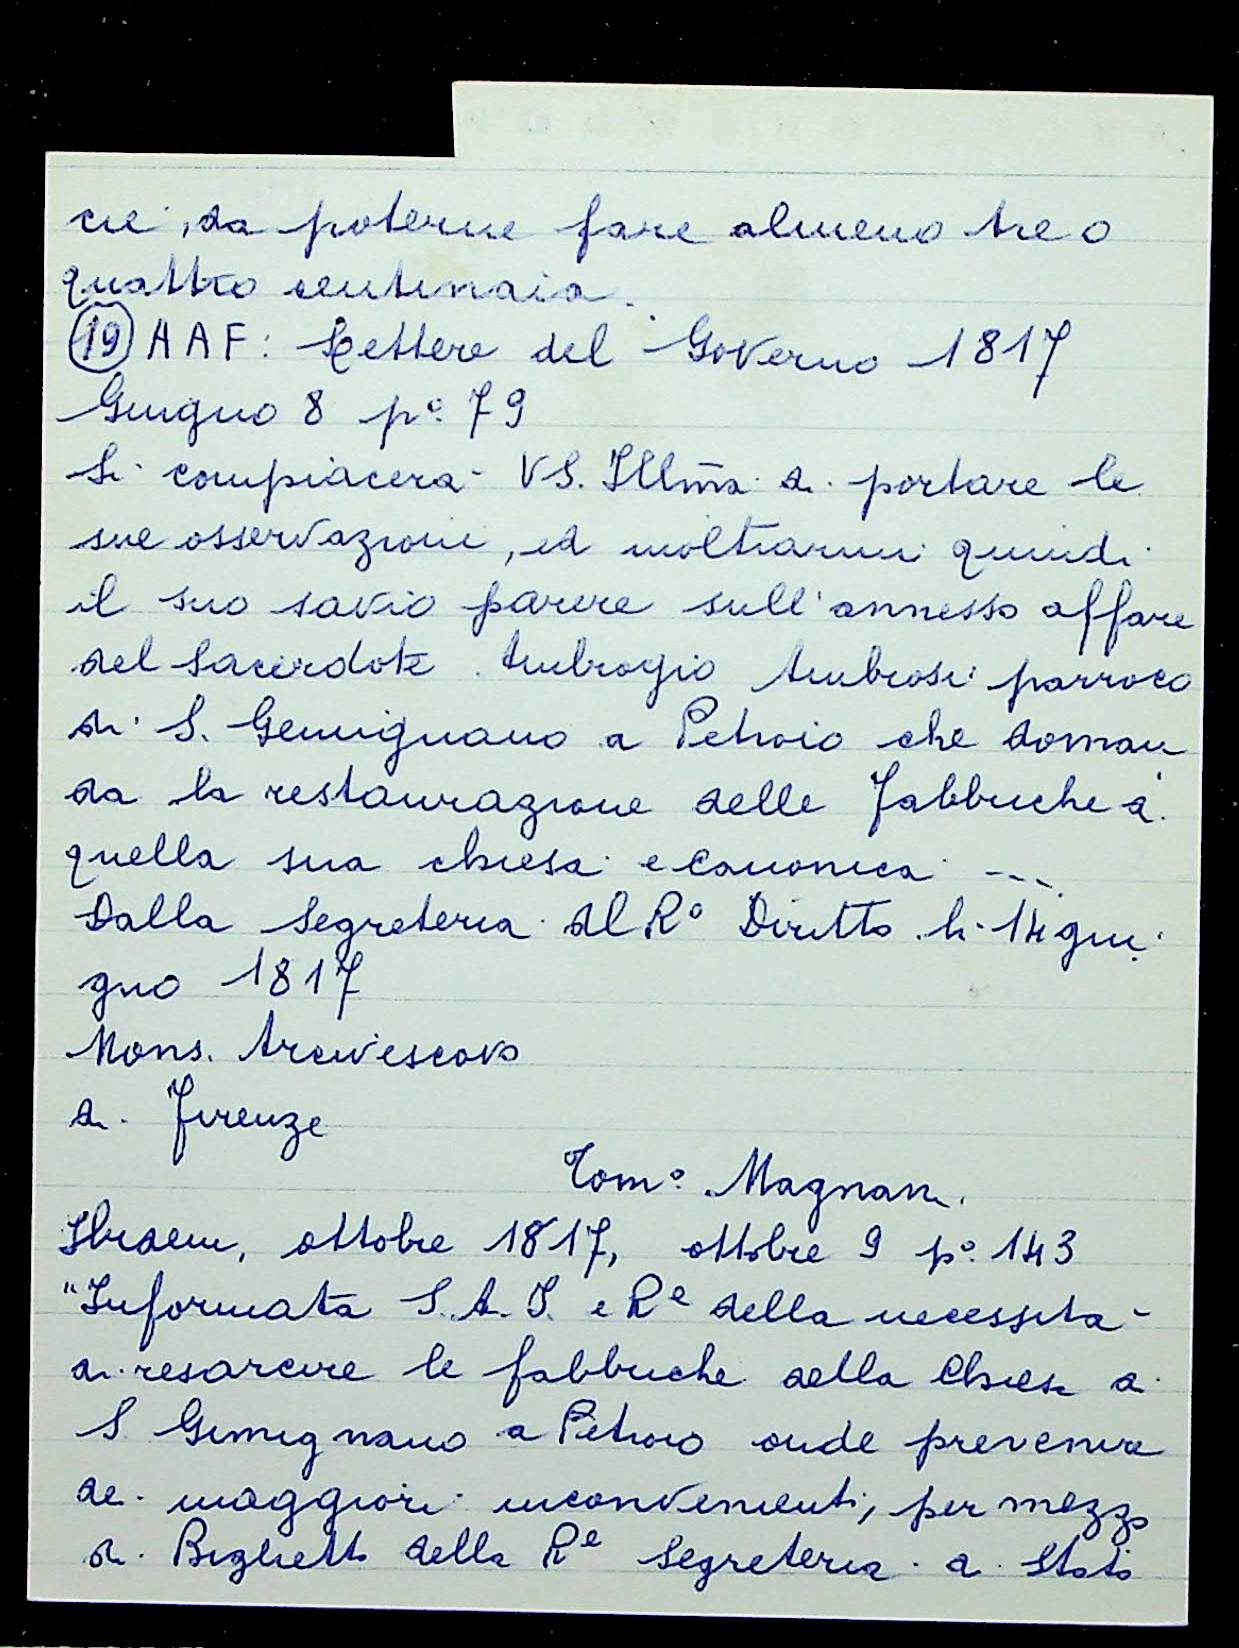 cie, da poterne fare almeno tre o
quattro centinaia.
(19) AAF: Lettere del Governo 1817
Giugno 8 pº 79
Si compiacerà VS. Illm̃a di portare le
sue osservazioni, ed inoltrarmi quindi
il suo savio parere sull'annesso affare
del Sacerdote Ambrogio Ambrosi parroco
di S. Gemignano a Petroio che doman
da la restaurazione delle Fabbriche di
quella sua chiesa e Canonica ---.
Dalla Segreteria del Rº Diritto li 14 giu:
gno 1817
Mons. Arcivescovo
di Firenze
Tomº Magnani.
Ibidem, ottobre 1817, ottobre 9 pº 143
"Informata S.A.I. e Rᵉ della necessità
di resarcire le fabbriche della Chiesa di
S Gimignano a Petroio onde prevenire
dei maggiori inconvenienti, per mezzo
di Biglietto della Rᵉ Segreteria di Stato